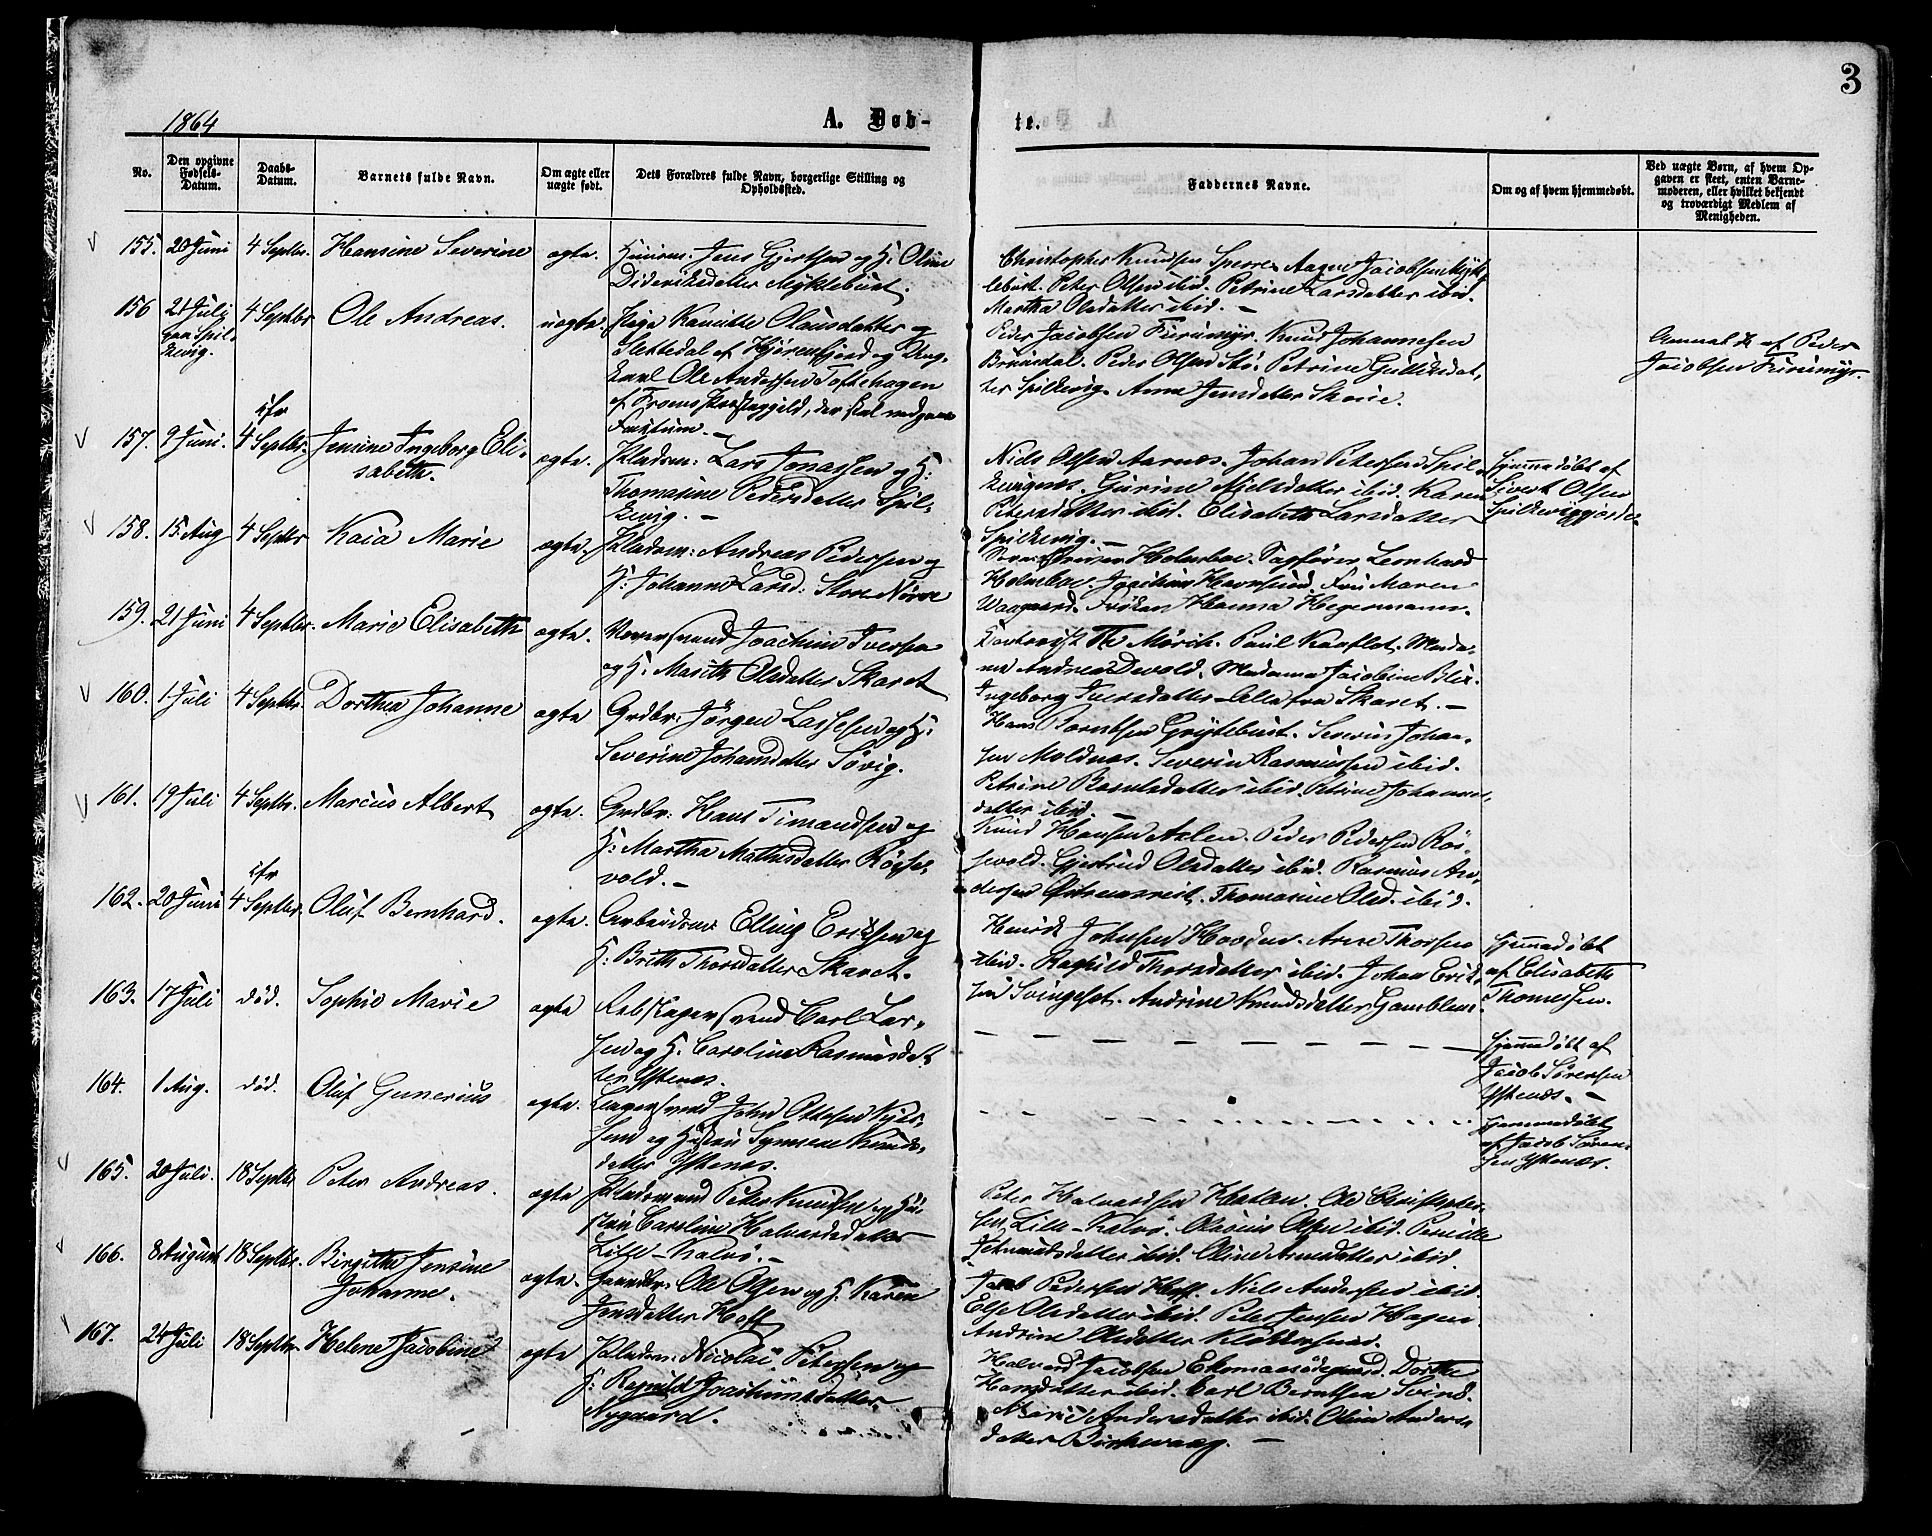 3
1864
A. Døb-
te.
No.
Den opgivne
Fødsels-
Datum.
Daabs-
Datum.
Barnets fulde Navn.
Om ægte eller
uægte født.
Dets Forældres fulde Navn, borgerlige Stilling og
Opholdssted.
Faddernes Navne.
Om og af hvem hjemmedøbt.
Ved uægte Børn, af hvem Op-
gaven er skeet, enten Barne-
moderen, eller hvilket bekjendt
og troværdigt Medlem af
Menigheden.
155. 20 Juni 4 Septbr. Hansine Severine ægte. Jens Gjertsen og H: Oline
Dideriksdatter Myklebust.
Christopher Knudsen Sperre. Aagne Jacobsen Mykle-
bust. Peter Olsen ibid. Petrine Larsdatter ibid.
Martha Olsdatter ibid. —
156 21 Juli 4 Septbr Ole Andreas. uægte. Pige Olausdatter
paa Spil-
kevig.
Slettedal af Hjørenfjord og Ung-
karl Ole Andersen Toftehagen
Faktum. —
Peder Jacobsen Furumyr. Knud Johannesen
Brunsdal. Peder Olsen Stö. Petrine Gulliksdat-
ter Spilkevig. Anne Jensdatter
Anmeldt af Peder
Jacobsen Furumyr.
157. 9 Juni. 4 Septbr. Jensine Ingeborg Eli-
sabeth. ægte. Pladsm: Lars Jonassen og H:
Thomasine Pedersdatter Spil-
kevig. —
Niels Olsen Aarnes. Johan Petersen Spil-
kevignes. Gurine Nielsdatter ibid. Karen
Petersdatter ibid. Elisabeth Larsdatter
Spilkevig. —
Hjemmedøbt af
Sivert Olsen
158. 15 Aug 4 Septbr Kaia Marie ægte. Pladsm: Andreas Pedersen og
H: Johanne Larsd: Store Nörve
Holmboe. Sagfører Leonhard
Holmboe. Joachim Havnsund. Fru Maren
Waagaard. Frøken Hanna Hegermann.
159. 21 Juni 4 Septbr. Marie Elisabeth ægte. Joachim Iversen
og H: Marith Olsdatter Skaret
Th Mörch. Paul Kaaflot. Mada-
me Andrea Devold. Madame Jacobine Blix.
Ingeborg Iversdatter fra Skaret. —
160. 1 Juli 4 Septbr. Dorthea Johanne ægte Grdbr: Jörgen Lassesen og H:
Severine Johansdatter Sövig.
Hans Berntsen Grytebust. Severin Johan-
sen Moldnes. Severin Rasmussen ibid.
Petrine Berntsdatter ibid. Petrine Johannes-
datter ibid. —
161. 19 Juli 4 Septbr. Marcus Albert ægte. Grdbr: Hans Timandsen og
H: Martha Mathisdatter Rögse-
vold. —
Knud Hansen Aalen. Peder Pedersen Rög-
sevold. Gjertrud Olsdatter ibid. Rasmus An-
dersen Thomasine Olsd. ibid.
162. 20 Juni 4 Septbr. Oluf Bernhard. ægte. Arbeidsm: Elling Eriksen og
H: Brith Thorsdatter Skaret.
Henrik Johnsen Arne Thorsen
ibid. Raghild Thorsdatter ibid. Johan Erik-
sen Svingeset. Andrine Knudsdatter Gamblem.
Hjemmedøbt
af Elisabeth
Thomessen.
163. 17 Juli død. Sophie Marie ægte Rebslagersvend Carl Lar-
sen og H. Caroline Rasmusdat-
ter Ystenes.
Hjemmedøbt af
Jacob Sörensen
Ystenes. —
164. 1 Aug. død. Oluf Gunerius ægte. John Ottesen
og Hustru Synneve Knuds-
datter Ystenes.
Hjemmedøbt
af Jacob Sören-
sen Ystenes.
165. 20 Juli. 18 Septbr Peter Andreas. ægte Pladsmand Peter Knudsen og Hu-
stru Caroline Halvardsdatter
Lille-Kalvö. —
Peter Halvardsen Hatlen. Ole Christopher-
sen Lille-Kalvö. Olsen ibid. Pernille
ibid. Oline Arnesdatter ibid.
166. 8 August 18 Septbr. Birgitha Jensine
Johanne. ægte. Gaardbr: Ole Olsen og H. Karen
Jensdatter Hoff
Jacob Pedersen Hoff. Niels Andersen ibid.
Else Olsdatter ibid. Peter Jensen Hagen
Andrine Olsdatter
167. 24 Juli 18 Septbr. Helene Jacobine ægte Pladsm: Nicolai Petersen og
H: Raghild Joachimsdatter
Nygaard.
Halvard Jacobsen Dorthe
Hansdatter ibid. Carl Berntsen
Marie Andersdatter ibid. Oline Anders-
datter —